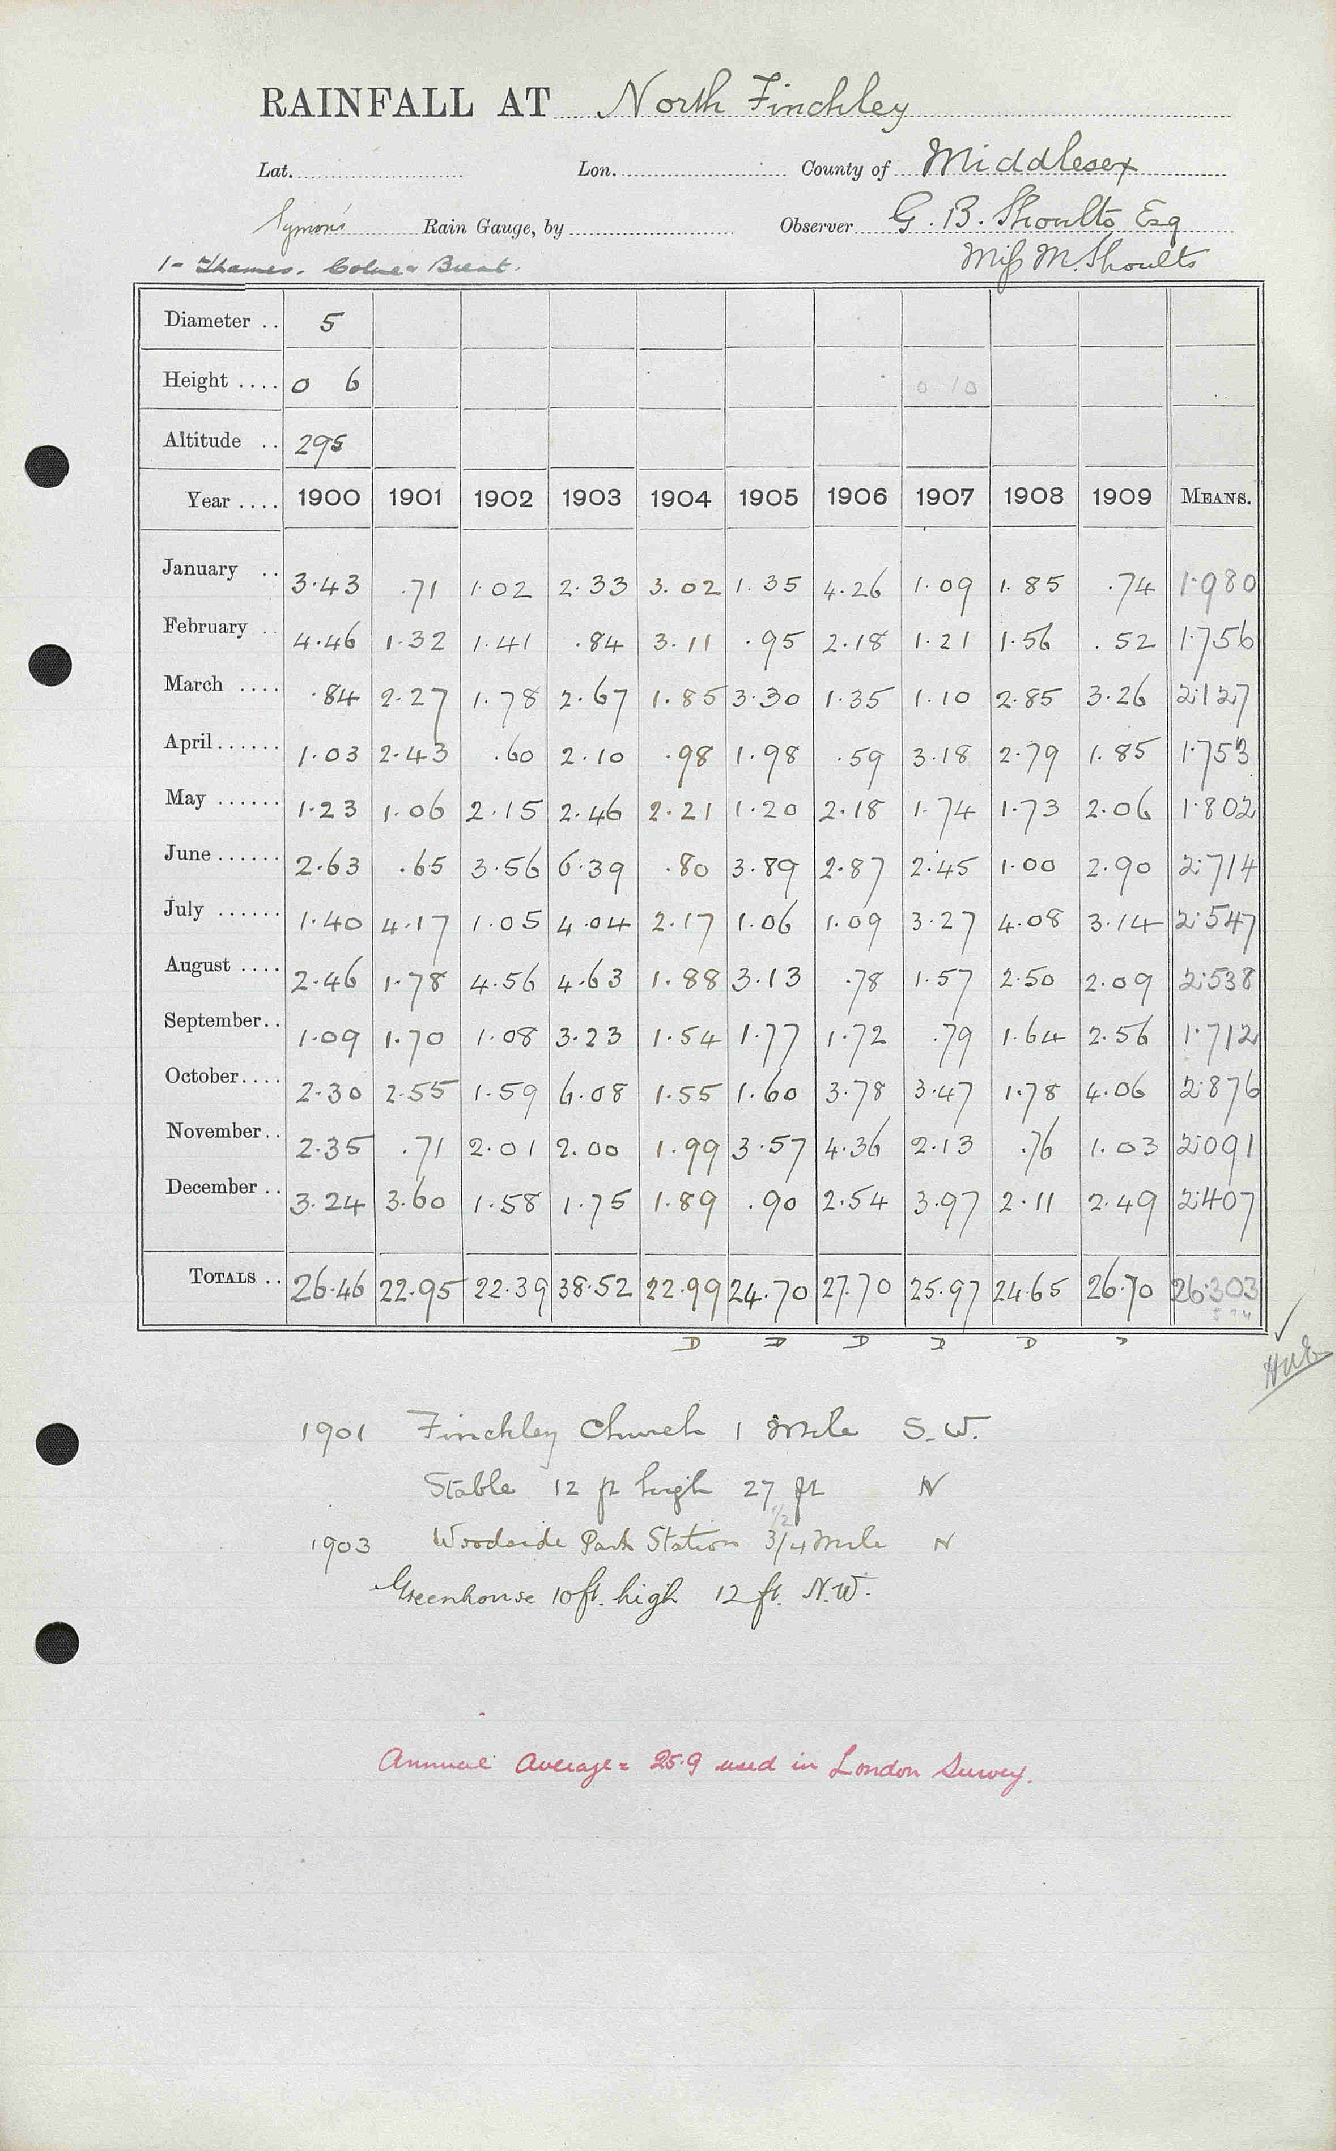 RAINFALL AT North Finchley
Lat. Lon. County of Middlesex
Symons Rain Gauge, by Observer G. B. Shoults Esq
1 - Thames. Colne & Brent. Miss M. Shoults
Diameter .. 5
Height .... 0 6 0 10
Altitude .. 295
Year .... 1900 1901 1902 1903 1904 1905 1906 1907 1908 1909 MEANS.
January .. 3.43 .71 1.02 2.33 3.02 1.35 4.26 1.09 1.85 .74 1.980
February .. 4.46 1.32 1.41 .84 3.11 .95 2.18 1.21 1.56 .52 1.756
March .... .84 2.27 1.78 2.67 1.85 3.30 1.35 1.10 2.85 3.26 2.127
April...... 1.03 2.43 .60 2.10 .98 1.98 .59 3.18 2.79 1.85 1.753
May ...... 1.23 1.06 2.15 2.46 2.21 1.20 2.18 1.74 1.73 2.06 1.802
June...... 2.63 .65 3.56 6.39 .80 3.89 2.87 2.45 1.00 2.90 2.714
July ...... 1.40 4.17 1.05 4.04 2.17 1.06 1.09 3.27 4.08 3.14 2.547
August .... 2.46 1.78 4.56 4.63 1.88 3.13 .78 1.57 2.50 2.09 2.538
September.. 1.09 1.70 1.08 3.23 1.54 1.77 1.72 .79 1.64 2.56 1.712
October.... 2.30 2.55 1.59 6.08 1.55 1.60 3.78 3.47 1.78 4.06 2.876
November.. 2.35 .71 2.01 2.00 1.99 3.57 4.36 2.13 .76 1.03 2.091
December .. 3.24 3.60 1.58 1.75 1.89 .90 2.54 3.97 2.11 2.49 2.407
TOTALS .. 26.46 22.95 22.39 38.52 22.99 24.70 27.70 25.97 24.65 26.70 26.303
D D D D D D
1901 Finchley Church 1 mile S.W.
Stable 12 ft high 27 ft N
1/2
1903 Woodside Park Station 3/4 mile N
Greenhouse 10 ft. high 12 ft. N.W.
Annual Average = 25.9 used in London Survey.